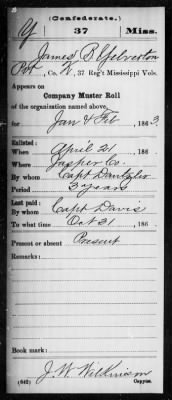 (Confederate.)
Y 37 Miss.
James B Yelverton
Pvt, Co. , 37 Reg't Mississippi Vols.
Appears on
Company Muster Roll
of the organization named above,
for Jan & Feb, 1863.
Enlisted:
When April 21, 186
Where Jasper Co.
By whom Capt Dantzler
Period 3 years
Last paid:
By whom Capt Davis
To what time Oct 31, 186
Present or absent Present
Remarks:
Book mark:
J. W. Wilkinson
(642) Copyist.